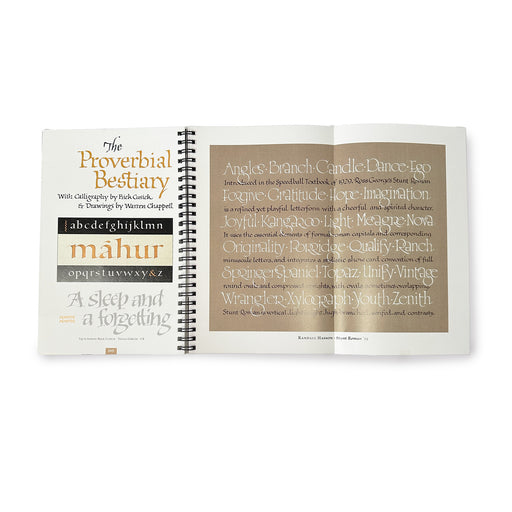 The
Proverbial
Bestiary
With Calligraphy by Rick Cusick
& Drawings by Warren Chappell
abcdefghijklmn
máhur
opqrstuvwxy&z
A sleep and
a forgetting
Angles · Branch · Candle · Dance · Ego
Introduced in the Speedball Textbook of 1929, Ross George's Stunt Roman
Forgive · Gratitude · Hope · Imagination
is a refined yet playful letterform, with a cheerful and spirited character.
Joyful · Kangaroo · Light · Meague · Nova
It uses the essential elements of formal Roman capitals and corresponding
Originality · Porridge · Qualify · Ranch
minuscule letters, and integrates a
Springer Spaniel · Topaz · Unify · Vintage
round ovals and compressed uprights, with ovals sometimes overlapping.
Wrangler · Xylograph · Youth · Zenith
Stunt Roman's vertical, branches, serifed and contrasts.
Randall Hasson · Stunt Roman